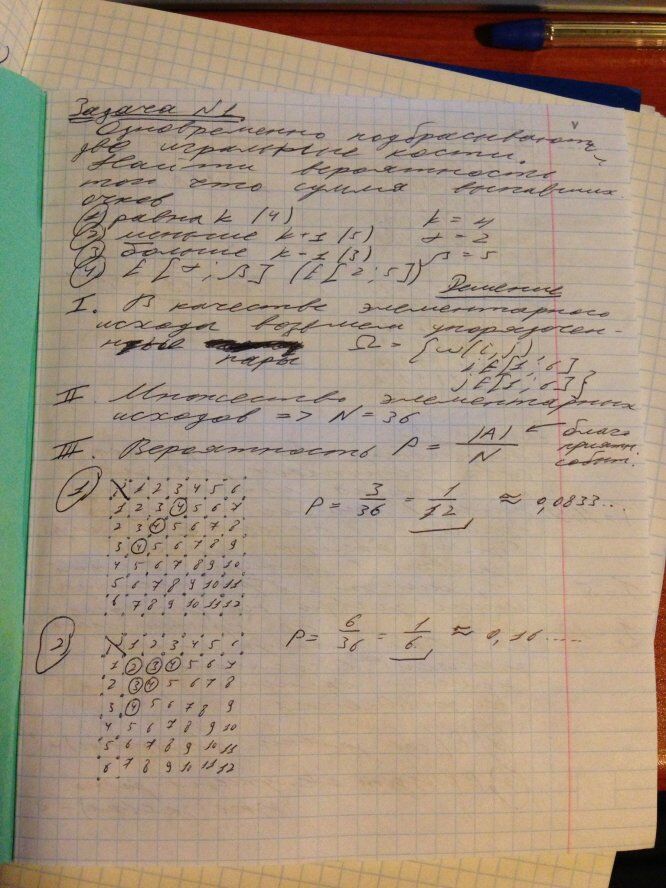 Задача N1
Одновременно подбрасывают
две игральные кости.
Найти вероятность
того что сумма выпавших
очков
① равна k (4) k = 4
② меньше k+1 (5) α = 2
③ больше k-1 (3) β = 5
④ ∈ [α; β] (∈ [2; 5])
Решение
I. В качестве элементарного
исхода возьмем упорядочен-
ные пары Ω = {ω(i, j)
i ∈ [1; 6]
j ∈ [1; 6]}
II Множество элементарных
исходов => N = 36
III. Вероятность P = |A| / N ← благо
приятн.
событ.
① P = 3/36 = 1/12 ≈ 0,0833...
1 2 3 4 5 6
1 2 3 ④ 5 6 7
2 3 ④ 5 6 7 8
3 ④ 5 6 7 8 9
4 5 6 7 8 9 10
5 6 7 8 9 10 11
6 7 8 9 10 11 12
② P = 6/36 = 1/6 ≈ 0,16.....
1 2 3 4 5 6
1 ② ③ ④ 5 6 7
2 ③ ④ 5 6 7 8
3 ④ 5 6 7 8 9
4 5 6 7 8 9 10
5 6 7 8 9 10 11
6 7 8 9 10 11 12